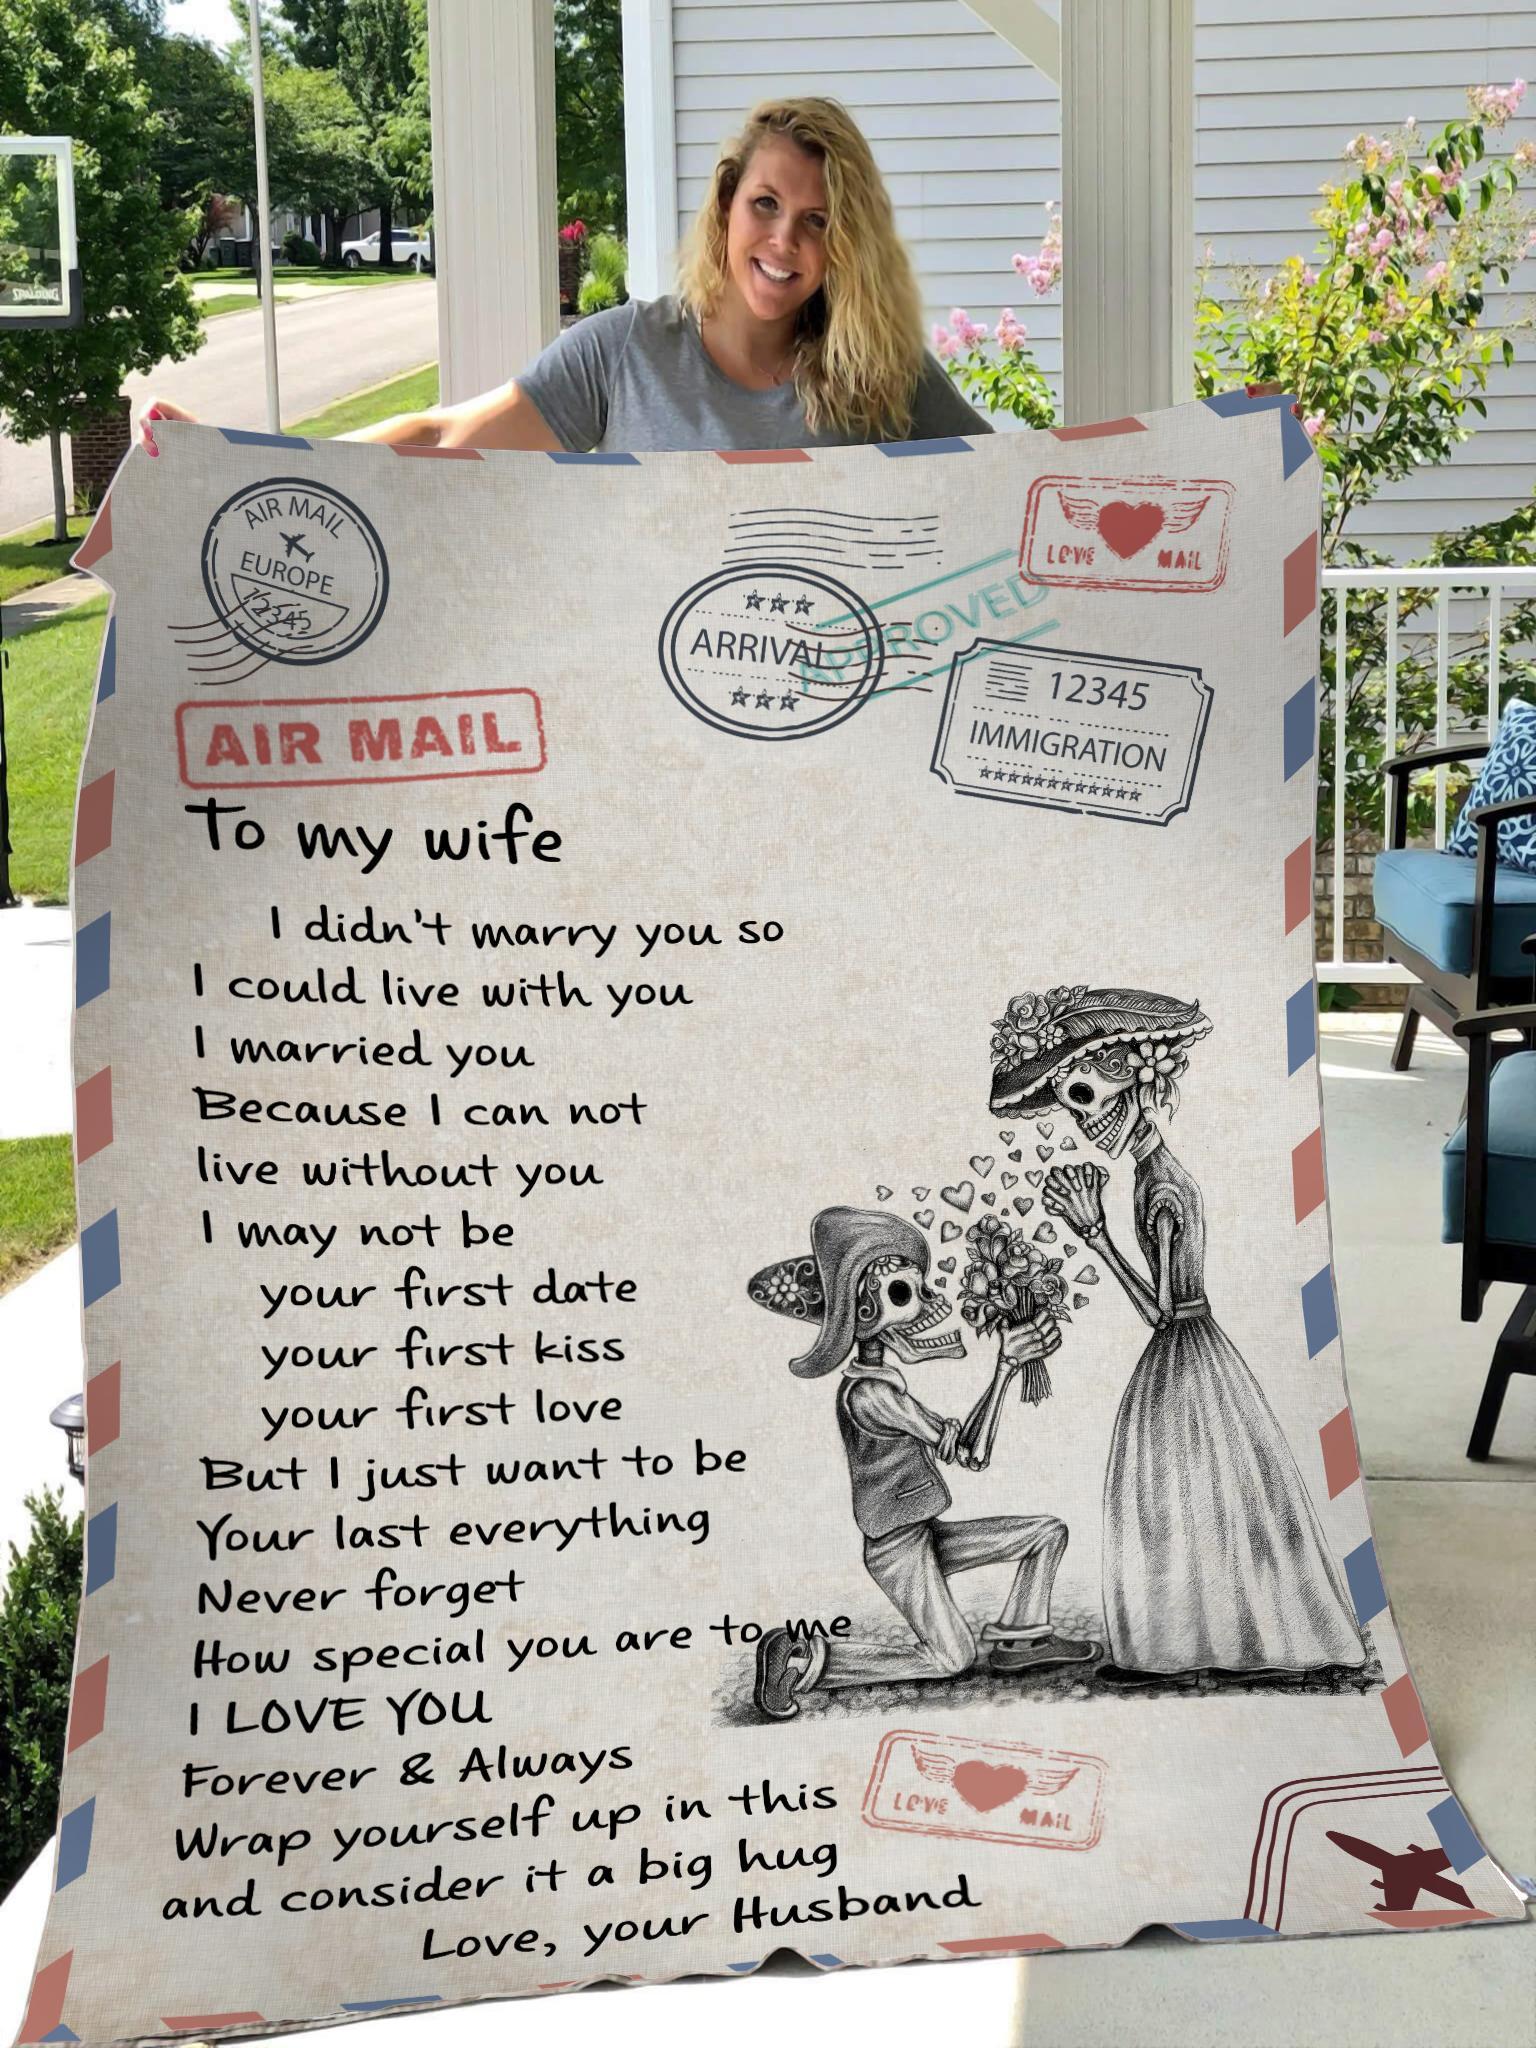 AIR MAIL
EUROPE
12345
AIR MAIL
ARRIVAL
APPROVED
LOVE MAIL
12345
IMMIGRATION
To my wife
I didn't marry you so
I could live with you
I married you
Because I can not
live without you
I may not be
your first date
your first kiss
your first love
But I just want to be
Your last everything
Never forget
How special you are to me
I LOVE YOU
Forever & Always
Wrap yourself up in this
and consider it a big hug
Love, your Husband
LOVE MAIL